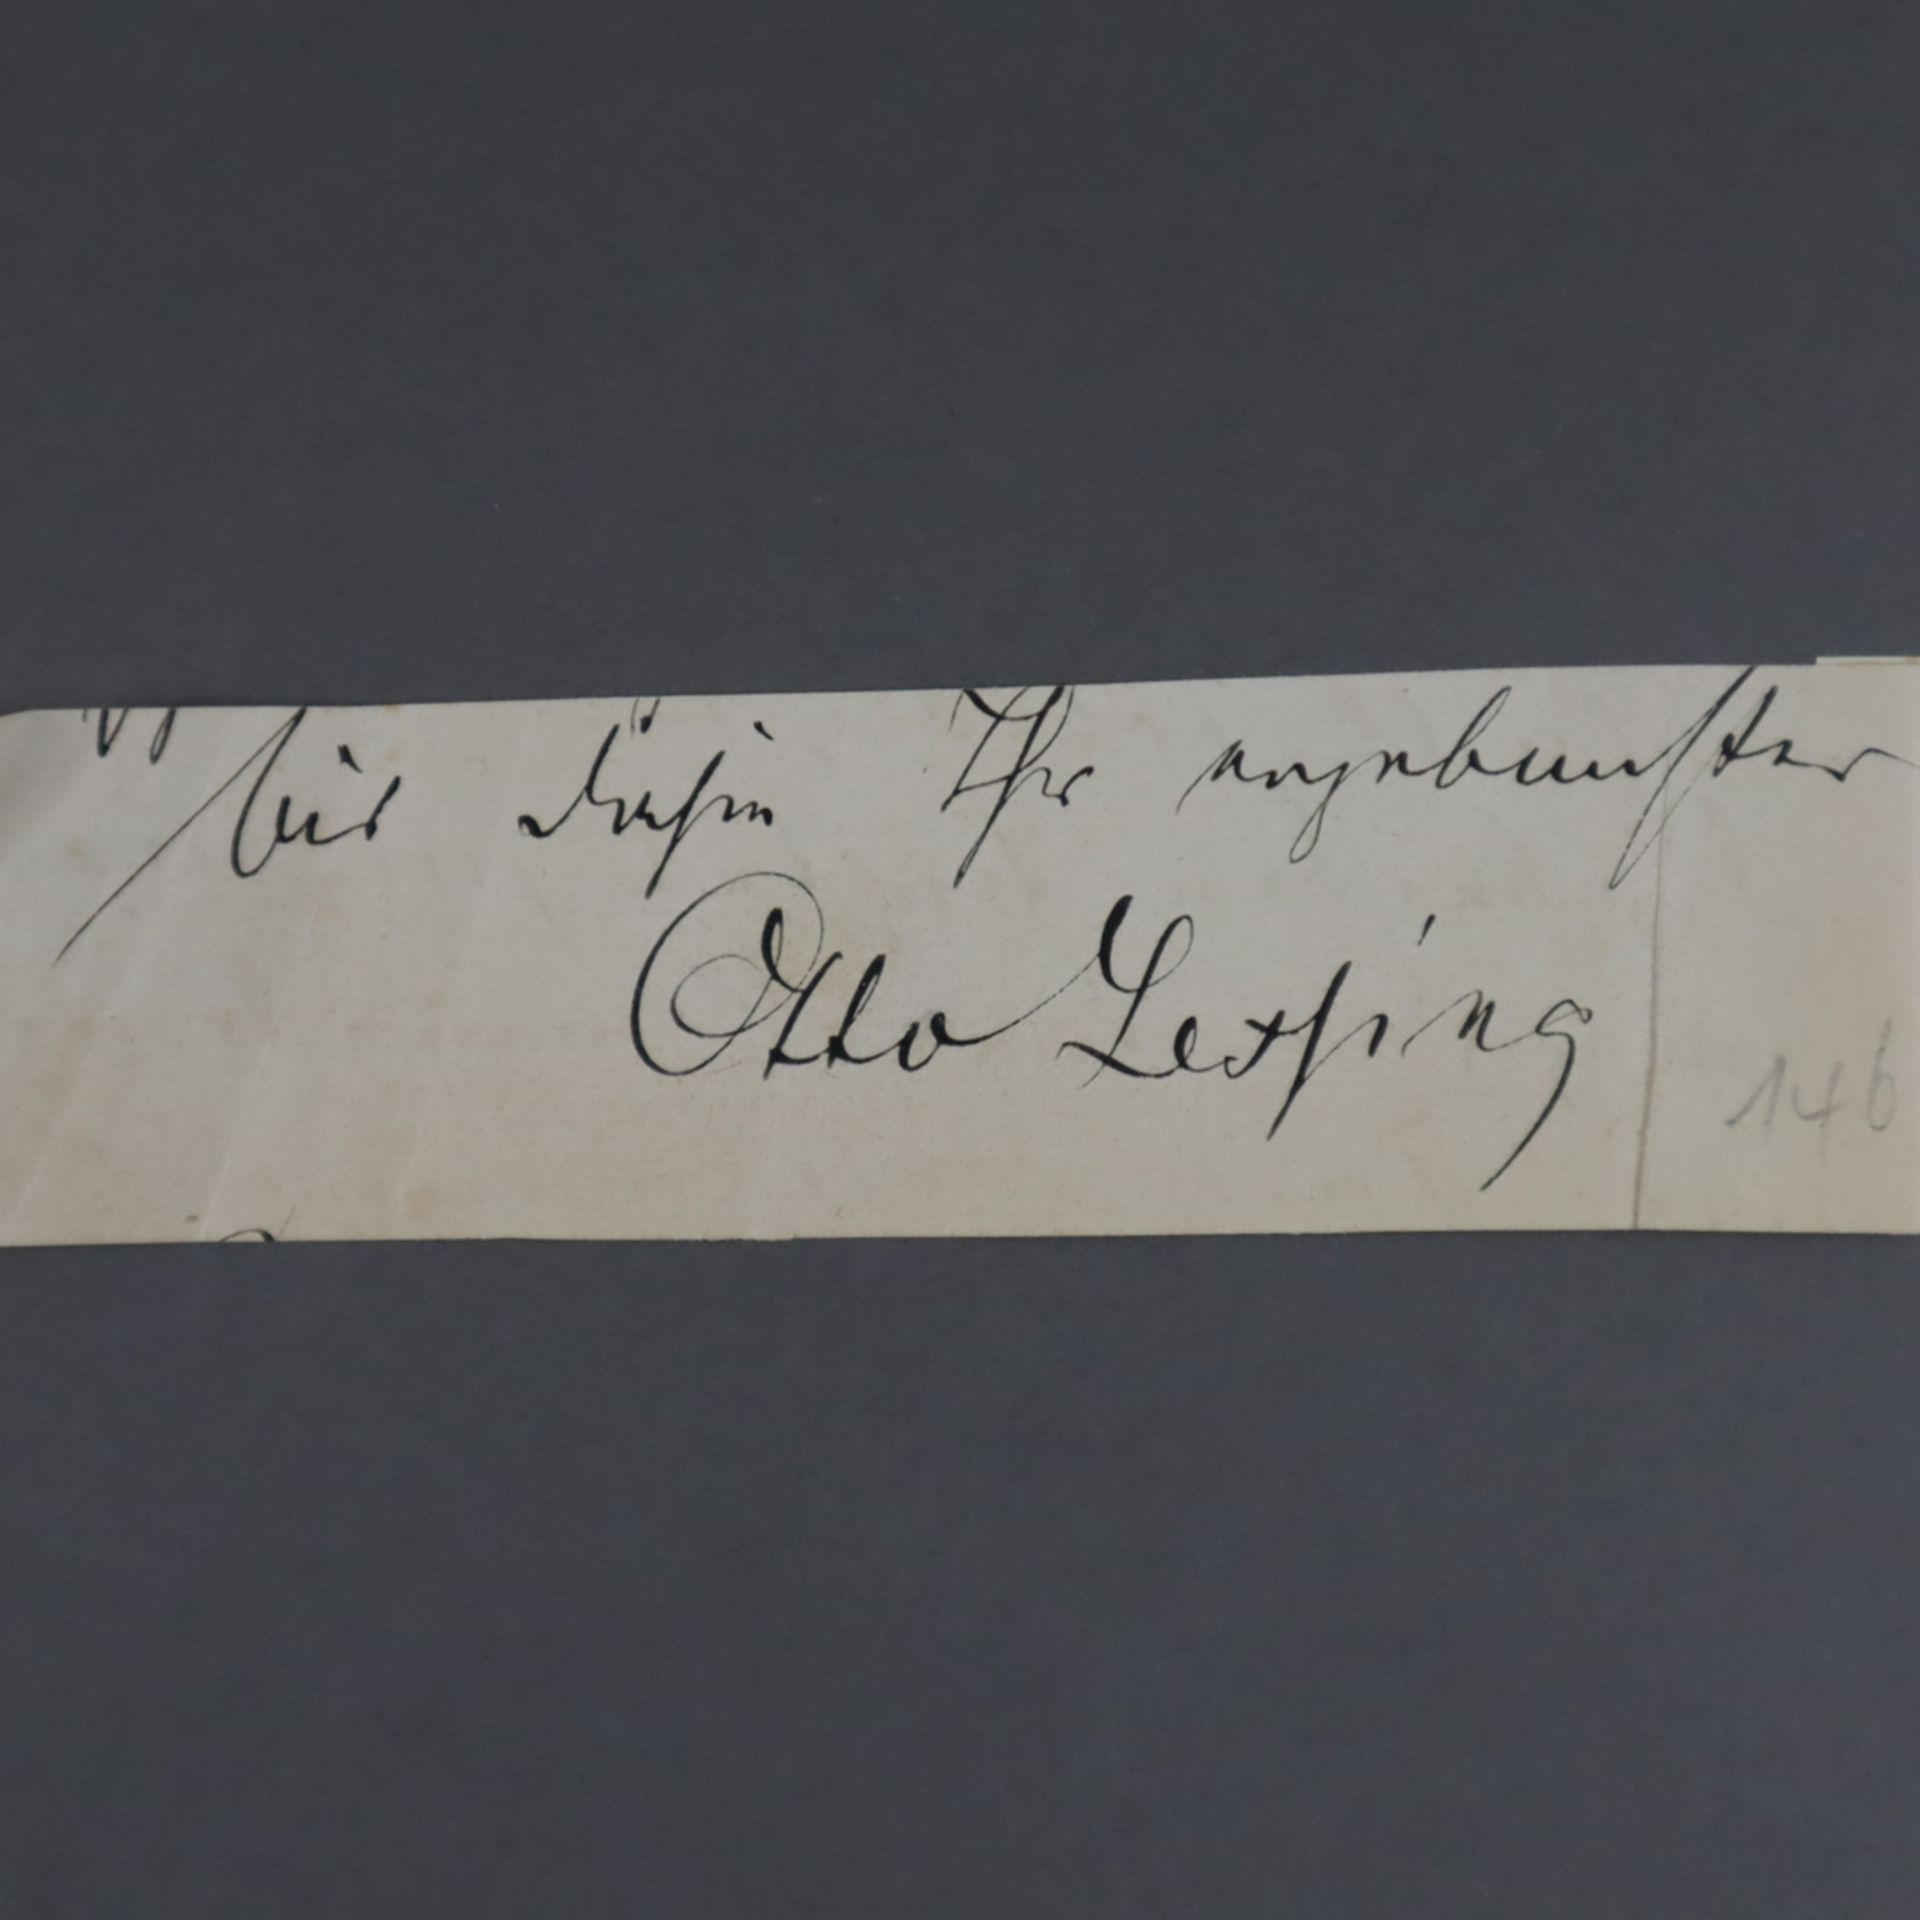 bis dahin Ihr ergebenster
Otto Lessing
146